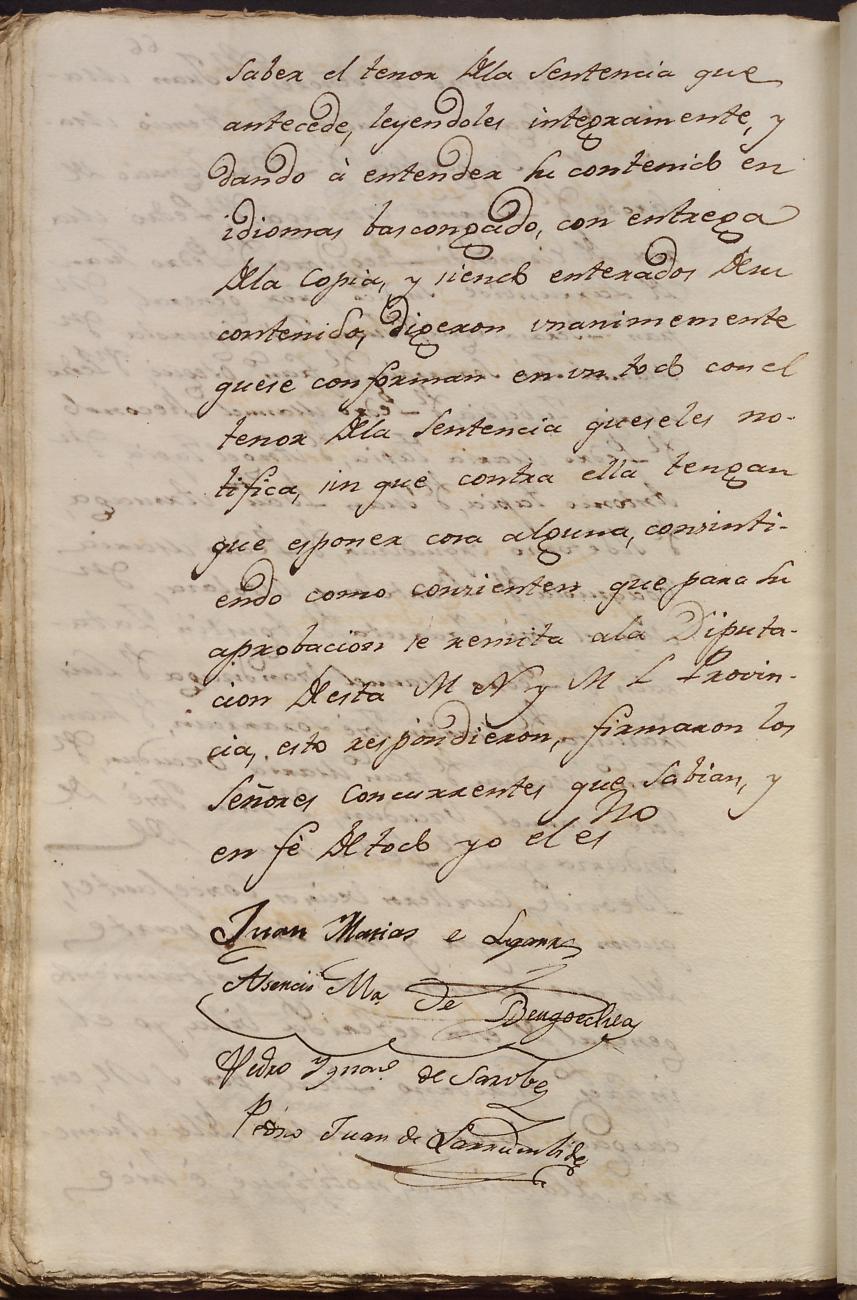 saber el tenor dela Sentencia que
antecede, leyendoles integramente, y
dando à entender su contenido en
idiomas bascongado, con entrega
dela Copia, y siendo enterados desu
contenido, digeron unanimemente
quese conforman en un todo con el
tenor dela Sentencia queseles no-
tifica, sin que contra ella tengan
que esponer cosa alguna, consinti-
endo como consienten que para su
aprobacion se remita ala Diputa-
cion desta M N y M L Provin-
cia, esto respondieron, firmaron los
Señores Concurrentes que sabian, y
en fé de todo yo el esno
Juan Matias e
Asencio Ma de Bengoechea
Pedro Ygnaº de Sarobe
Pedro Juan de Larrumbide